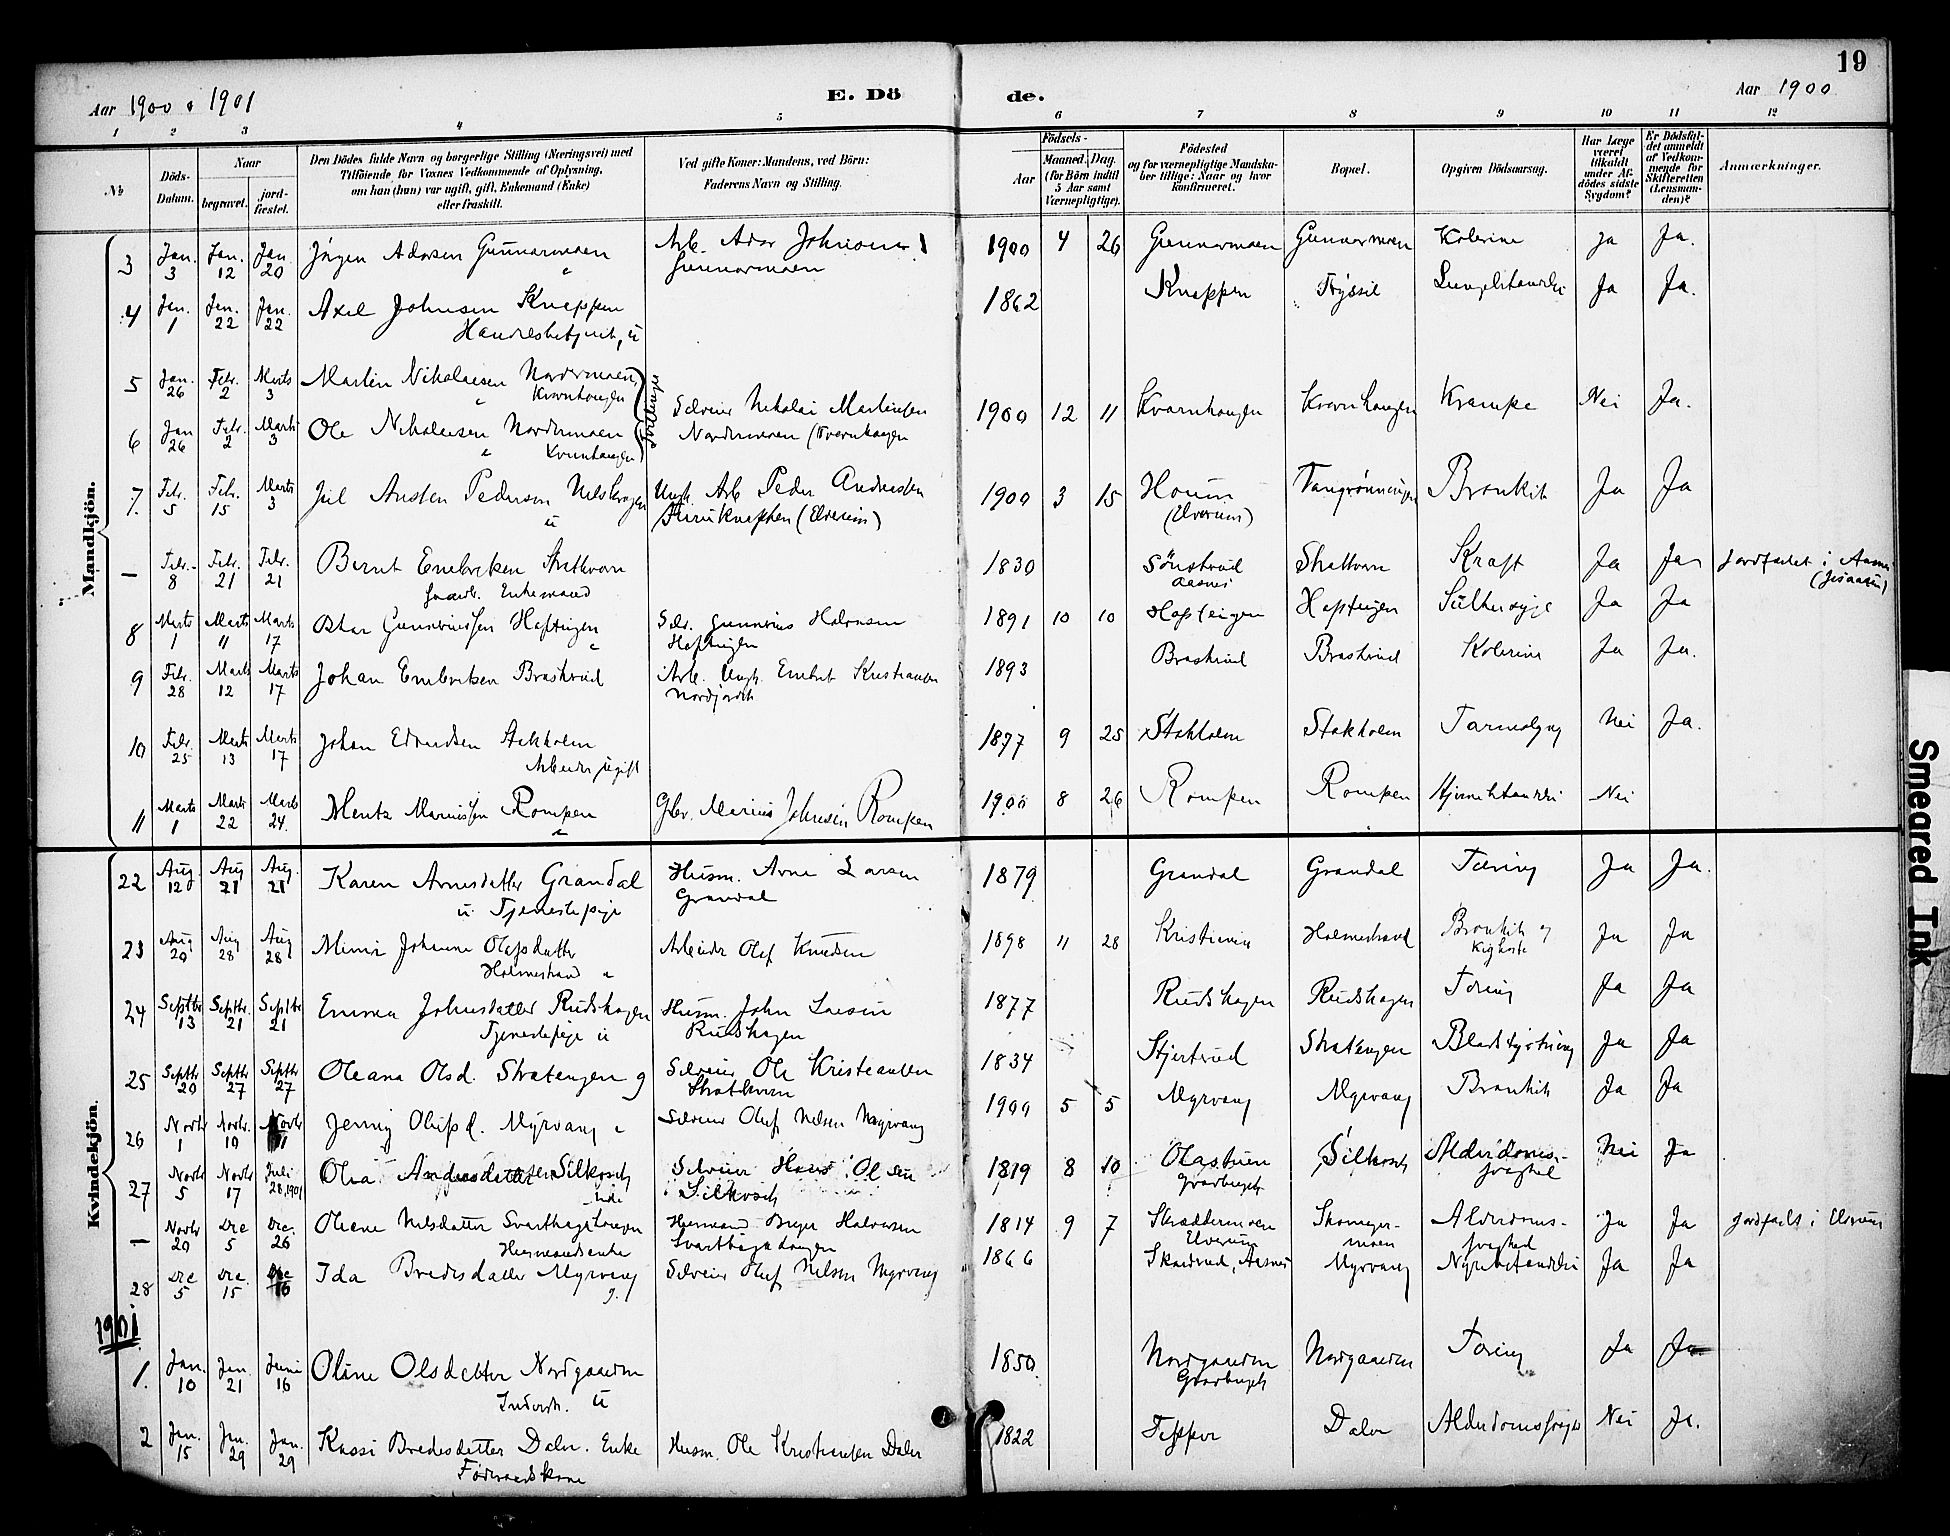 19
Aar 1900 & 1901
E. Dö
de.
Aar 1900
1 2 3 4 5 6 7 8 9 10 11 12
No
Döds-Datum.
Naar
begravet.
jord-fæstet.
Den Dödes fulde Navn og borgerlige Stilling (Næringsvei) med
Tilföiende for Voxnes Vedkommende af Oplysning,
om han (hun) var ugift, gift, Enkemand (Enke)
eller fraskilt.
Ved gifte Koner: Mandens, ved Börn:
Faderens Navn og Stilling.
Födsels-
Aar
Maaned. Dag.
(for Börn indtil
5 Aar samt
Værnepligtige).
Födested
og for værnepligtige Mandska-
ber tillige: Naar og hvor
konfirmeret.
Bopæl.
Opgiven Dödsaarsag.
Har Læge
været
tilkaldt
under Af-
dödes sidste
Sygdom?
Er Dödsfal-
det anmeldt
af Vedkom-
mende for
Skifteretten
(Lensman-
den)?
Anmærkninger.
Mandkjön.
3 Jan. 3 Jan. 12 Jan. 20 Jörgen Adorsen Gunnarmoen Arb. Ador Johnsen Gunnarmoen 1900 4 26 Gunnarmoen Gunnarmoen Kolerine ja Ja.
4 Jan. 1 Jan. 22 Jan. 22 Axel Johnsen Knappen Handelsbetjent, u 1862 Knappen Trysil Ja Ja.
5 Jan. 26 Febr. 2 Marts 3 Martin Nikolaisen Nordermoen, Kvernhaugen
Tvillinger Selveier Nikolai Martinsen Nordermoen (Kvernhaugen 1900 12 11 Kvarnhaugen Kvernhaugen Krampe Nei Ja.
6 Jan 26 Febr. 2 Marts 3 Ole Nikolaisen Nordermoen Kvernhaugen
7. Febr. 5 Febr. 15 Marts 3 Juel Austen Pedersen Ungk. Arb. Peder Andreassen (Elverum) 1900 3 15 (Elverum) Bronkit Ja Ja
— Febr. 8 Febr. 21 Febr. 21 Bernt Embretsen Skatkvern Enkemand 1830 Sönstrud Aasnes Skatkvern Kraft Ja Ja Jordfæstet i Aasnes
8 Marts 1 Marts 11 Marts 17 Gunneriussen Haftingen Gunerius Halvorsen Haftingen 1891 10 10 Haftingen Haftingen Sukkersyge Ja Ja
9 Febr. 28 Marts 12 Marts 17 Johan Embretsen Braskrud Arb. Ungk. Embret Kristiansen 1893 Braskrud Braskrud Kolerine Ja Ja.
10 Febr. 25 Marts 13 Marts 17 Johan Edvardsen Stakholm Arbeider, ugift 1877 9 25 Stakholm Stakholm Nei Ja.
11 Marts 1 Marts 22 Marts 24. Mentz Mariussen Rompen Gbr. Marius Johnsen Rompen 1900 8 26 Rompen Rompen Nei
Kvindekjön.
22 Aug. 12 Aug 21 Aug. 21 Karen Arnesdatter Grandal u. Tjenestepige Husm. Arne Larsen Grandal 1879 Grandal Grandal Tæring Ja Ja.
23 Aug 20 Aug 28 Aug 28 Johanne Olafsdatter Holmestrand Arbeider Olaf Knudsen 1898 11 28 Kristiania Holmestrand Bronkit og Kighoste Ja Ja
24 Septbr 13 Septbr. 21 Septbr 21 Emma Johnsdatter Rudshagen Tjenestepige u Husm. John Larsen Rudshagen 1877 Rudshagen Rudshagen Tæring Ja Ja
25 Septbr 20 Septbr 27 Septbr 27 Oleana Olsd. Skatengen g Selveier Ole Kristiansen Skatkvern 1834 Stjertrud Skatengen Ja Ja
26 Novbr 1 Novbr. 10 Novbr 11 Jenny Olufsd. Myrvang Selveier Oluf Nilsen Myrvang 1900 5 5 Myrvang Myrvang Bronkit Ja Ja
27 Novbr 5 Novbr 17 Juli 28, 1901 Olea Andersdatter Silkosch Enke Selveier Hans Olsen Silkosch 1819 8 10 Olastuen Gravberget Silkosch Alderdoms-svaghed Nei Ja
— Novbr 20 Dec 5 Dec. 26 Oleane Nilsdatter Svarthagahaugen Husmandsenke Husmand Birger Halvorsen 1814 9 7 Skræddermoen Elverum Skomager-moen Alderdoms-svaghed Ja Ja Jordfæstet i Elverum
28 Dec 5 Dec. 15 Dec 16 Ida Bredesdatter Myrvang g. Selveier Oluf Nilsen Myrvang 1866 Skardrud, Aasnes Myrvang Nyrebetændelse Ja Ja
1901
1. Jan. 10 Jan. 21 Juni 16 Oline Olsdatter Nordgaarden Inderst. u 1850 Nordgaarden Gravberget Nordgaarden Tæring Ja Ja
2 Jan. 15 Jan. 29 Jan. 29 Kassi Bredesdatter Daler. Enke Föderaadskone Husm. Ole Kristiansen Daler 1822 Daler Nei Ja.
Smeared Ink